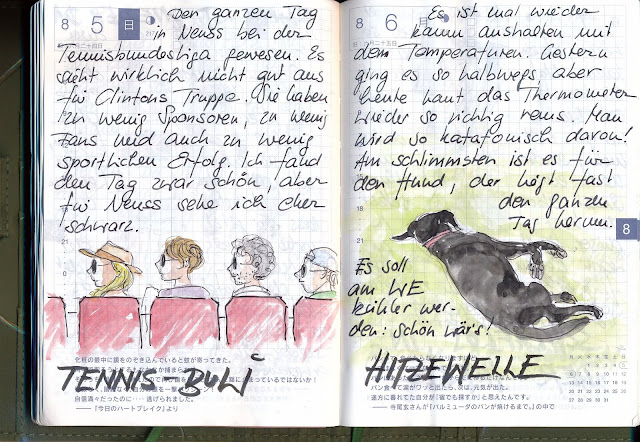 8 5 日
Den ganzen Tag
in Neuss bei der
Tennisbundesliga gewesen. Es
sieht wirklich nicht gut aus
für Clintons Truppe. Sie haben
zu wenig Sponsoren, zu wenig
Fans und auch zu wenig
sportlichen Erfolg. Ich fand
den Tag zwar schön, aber
für Neuss sehe ich eher
schwarz.
TENNIS-BULI
化粧の最中に鏡をのぞき込んでいると蚊が寄ってきた。
自信満々だったのに・・・逃げられました。
——「今日のハートブレイク」より
8 6 月
Es ist mal wieder
kaum auszuhalten mit
dem Temperaturen. Gestern
ging es so halbwegs, aber
heute haut das Thermometer
wieder so richtig rein. Man
wird so katatonisch davon!
Am schlimmsten ist es für
den Hund, der liegt fast
den ganzen
Tag herum.
8
Es soll
am WE
kühler wer-
den: schön wär's!
HITZEWELLE
途方に暮れてた自分が「宿でも探すか」と思えたんです。
——寺尾玄さんが「バルミューダのパンが焼けるまで。」の中で